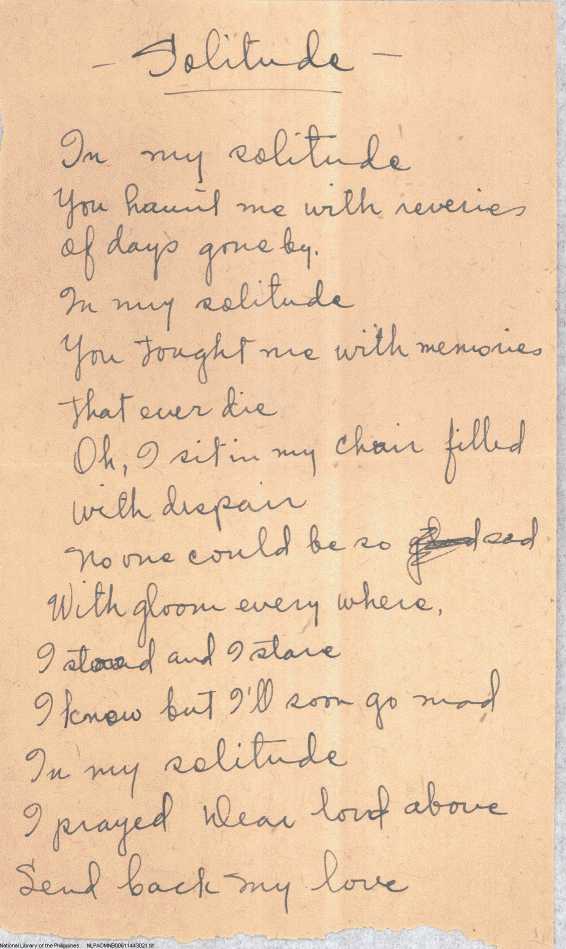 - Solitude -
In my solitude
You haunt me with reveries
of days gone by.
In my solitude
You tought me with memories
that ever die
Oh, I sit in my chair filled
with despair
no one could be so sad
With gloom every where,
I stood and I stare
I know but I'll soon go mad
In my solitude
I prayed Dear lord above
Send back my love
National Library of the Philippines